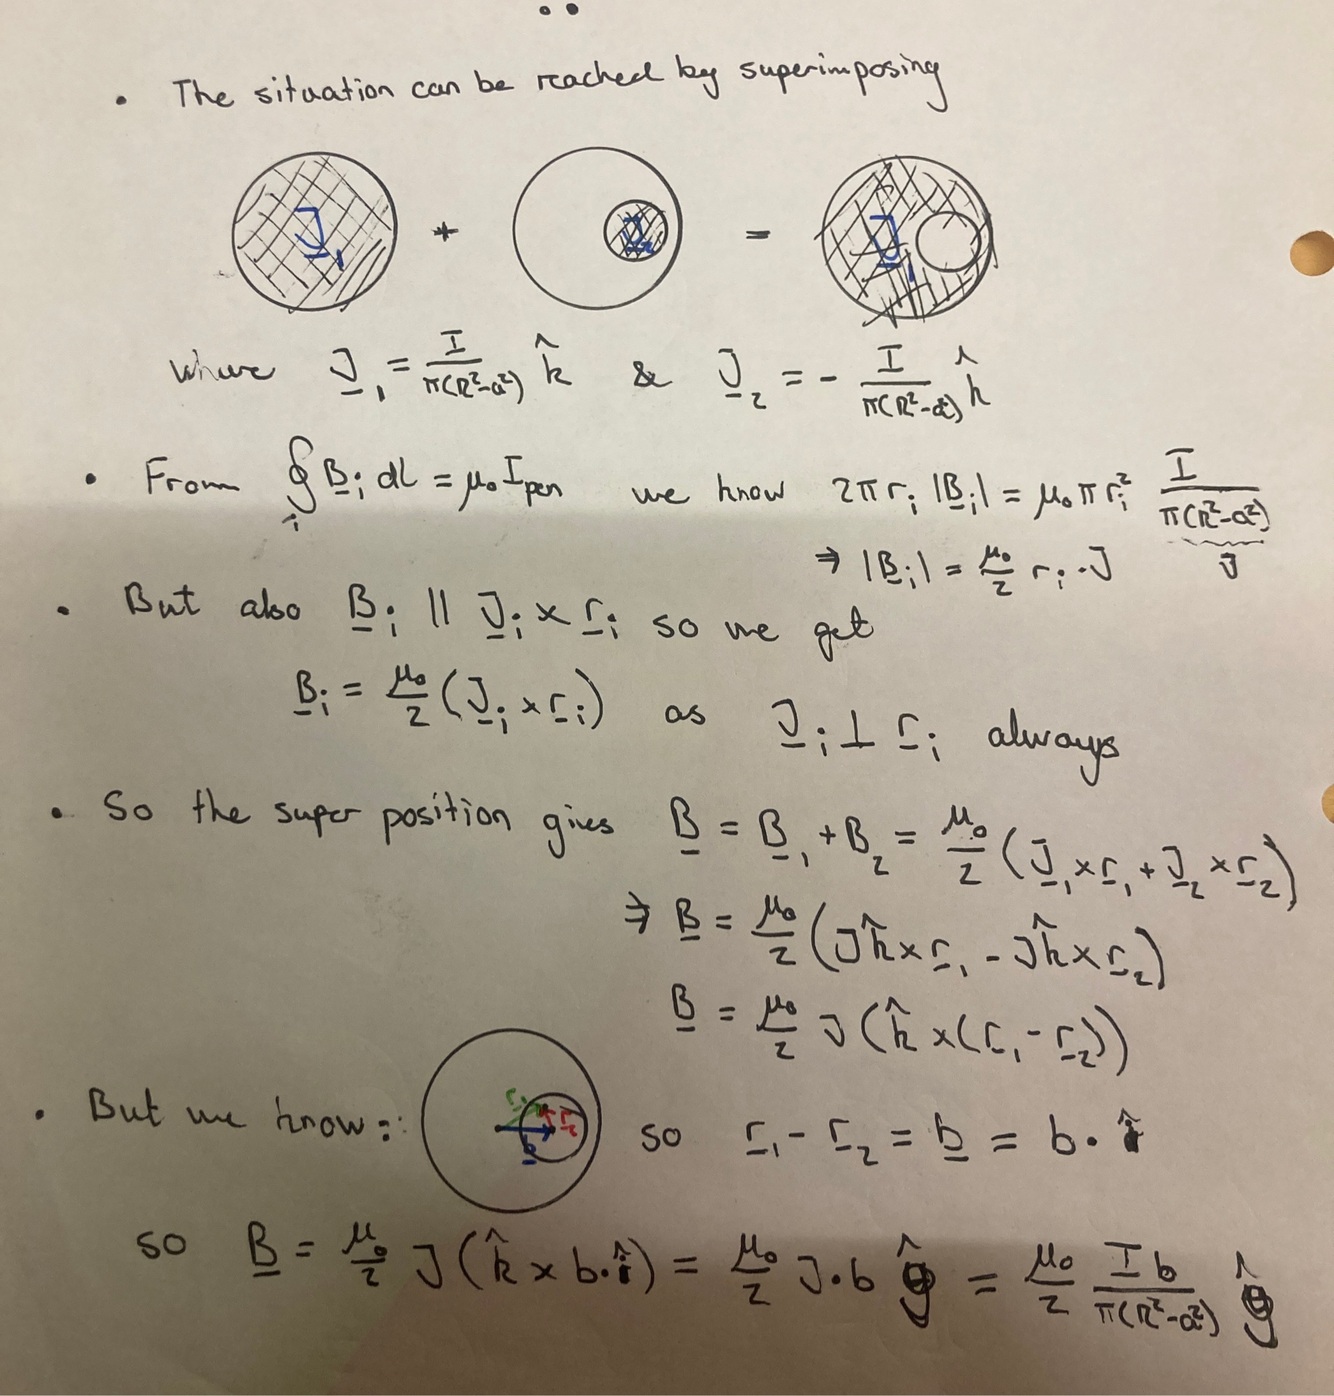 • The situation can be reached by superimposing
J₁ + J₂ = J₁
where J₁ = I/π(R²-a²) k̂ & J₂ = - I/π(R²-a²) k̂
• From ∮ᵢ Bᵢ dl = μ₀ I pen we know 2π rᵢ |Bᵢ| = μ₀ π rᵢ² I/π(R²-a²)
⇒ |Bᵢ| = μ₀/2 rᵢ · J J
• But also Bᵢ || Jᵢ × rᵢ so we get
Bᵢ = μ₀/2 (Jᵢ × rᵢ) as Jᵢ ⊥ rᵢ always
• So the super position gives B = B₁ + B₂ = μ₀/2 (J₁ × r₁ + J₂ × r₂)
⇒ B = μ₀/2 (J k̂ × r₁ - J k̂ × r₂)
B = μ₀/2 J (k̂ × (r₁ - r₂))
• But we know: r₁ r₂ b so r₁ - r₂ = b = b · î
so B = μ₀/2 J (k̂ × b · î) = μ₀/2 J · b ĵ = μ₀/2 I b/π(R²-a²) ĵ